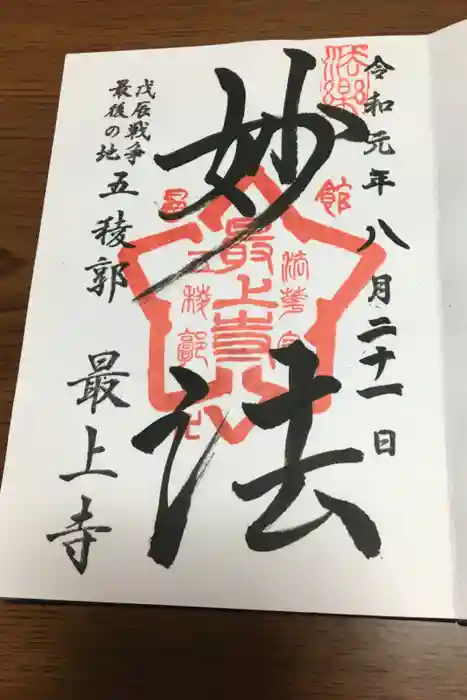 令和元年八月二十一日
法楽
妙法
函館
最上寺
法華宗
五稜郭
戊辰戦争
最後の地
五稜郭
最上寺